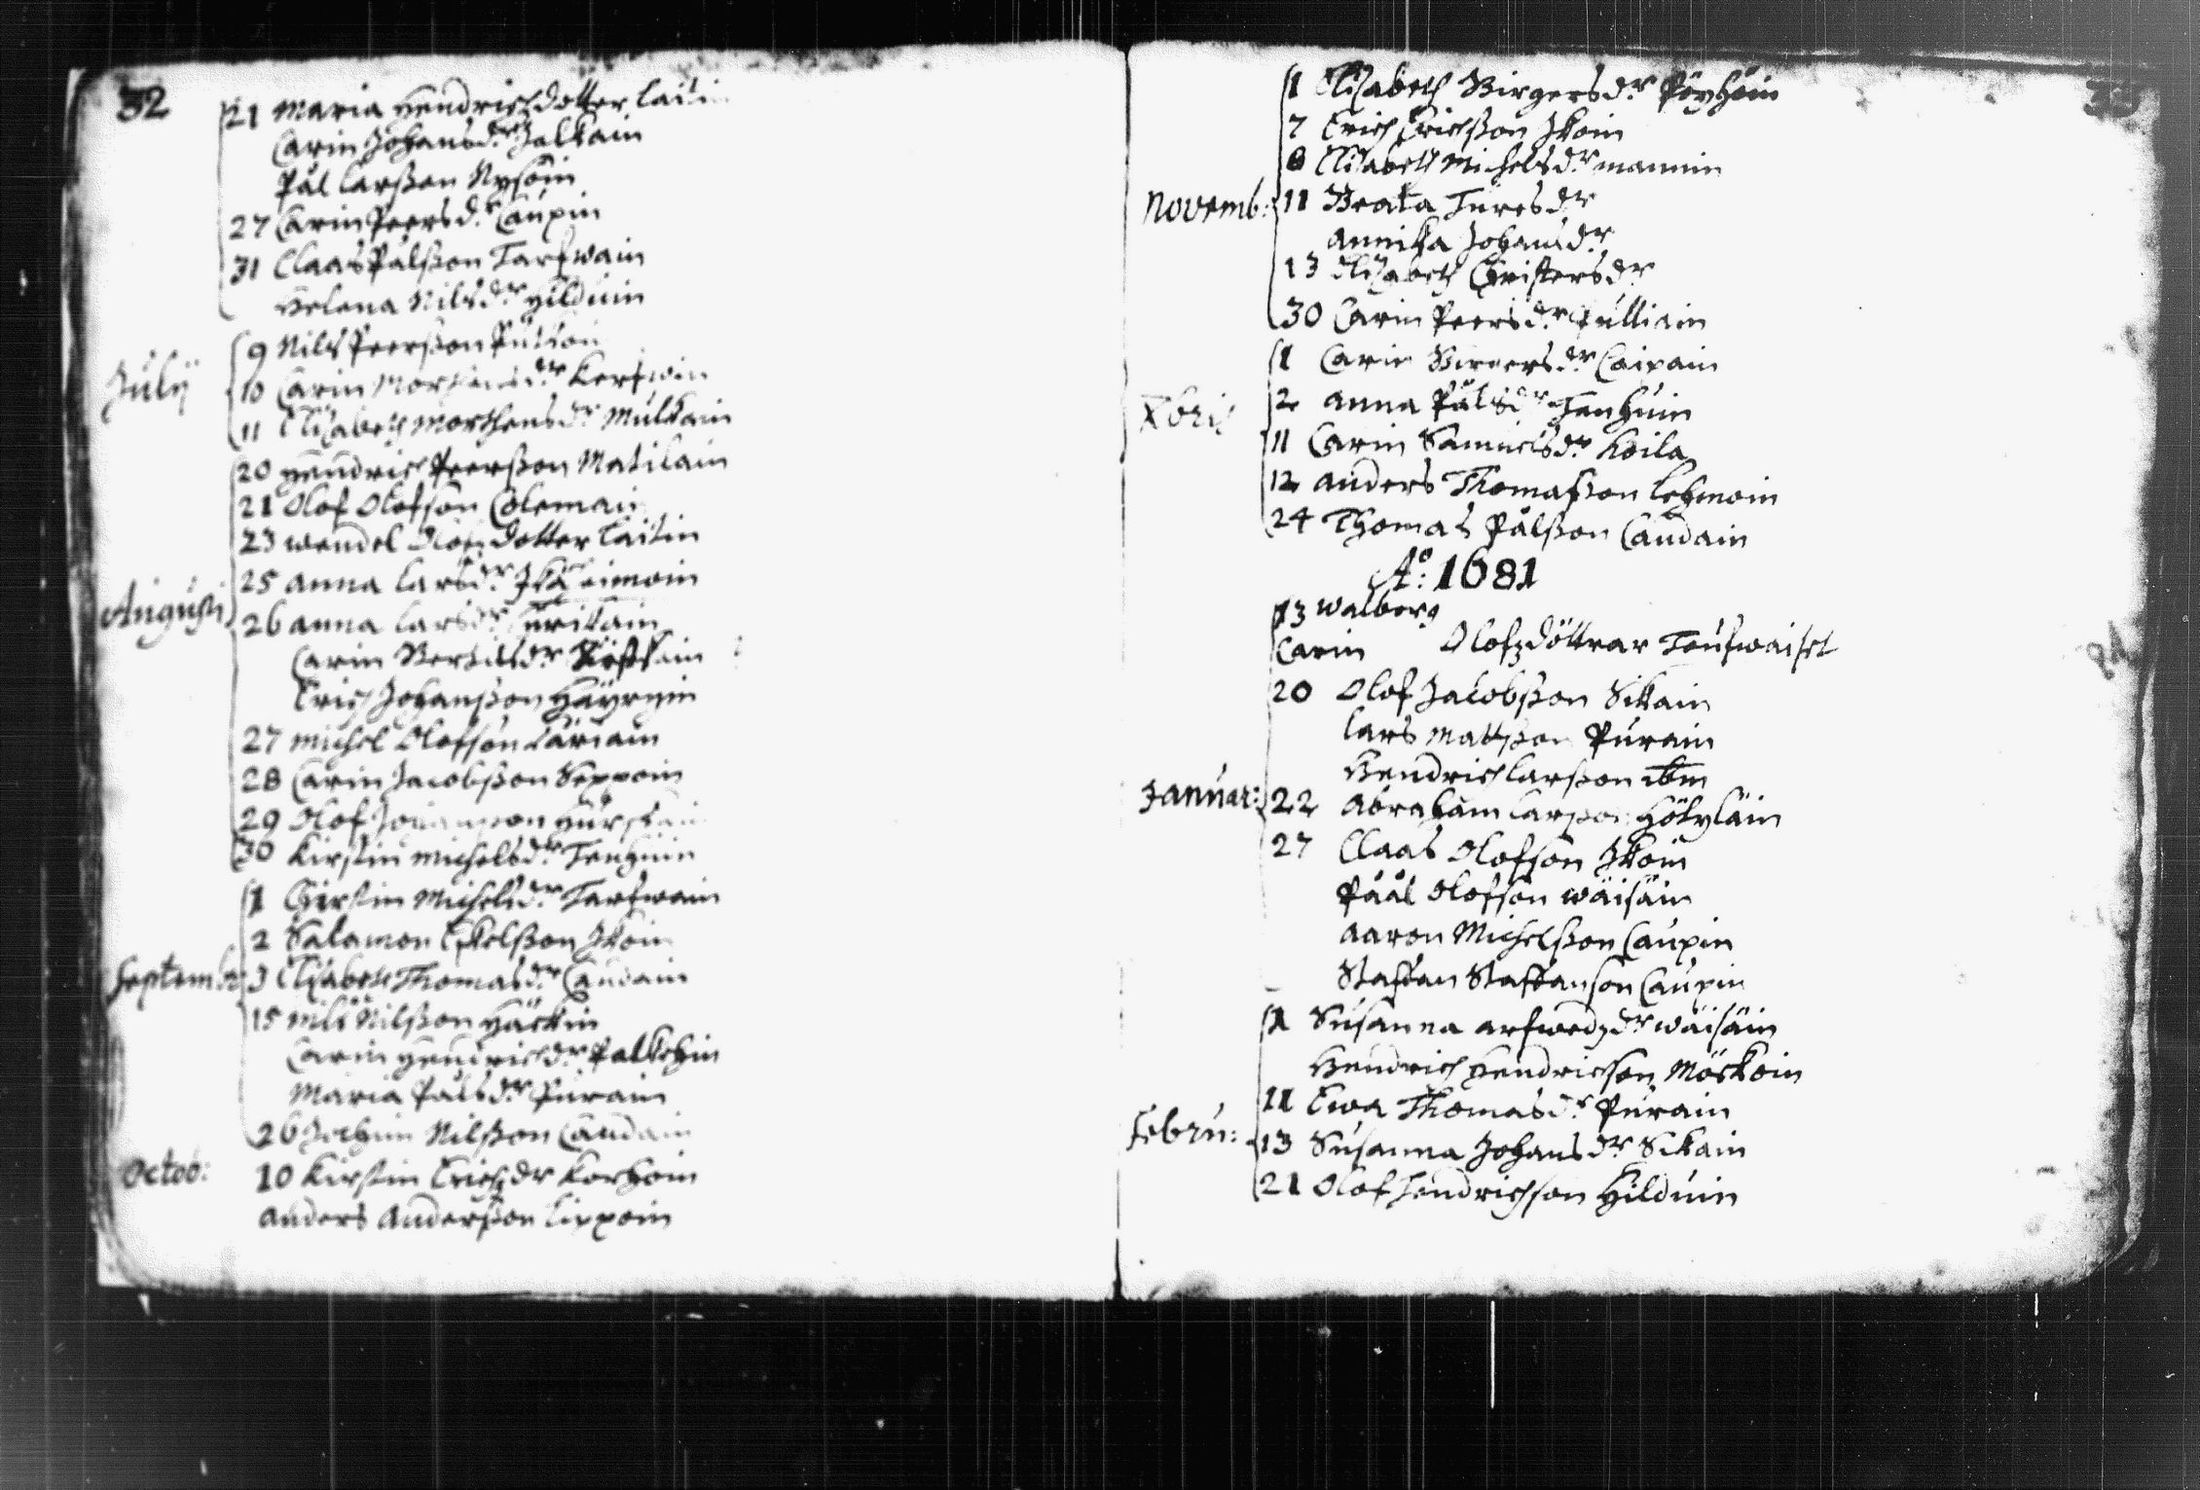 32
21 Maria Hendrichdotter Laitin
Carin Johansdr Jalkain
Pål Larsson Nysöin
27 Carin Peersdr Caupin
31 Claas Pålsson Tarfwain
Helena Nilsdr Hilduin
July
9 Nils Peersson
10 Carin Morthensdr Kerfwin
11 Elisabeth Morthensdr Mulkain
Augusti
20 Hendrich Peersson Matilain
21 Olof Olofson Colemain
23 Wendel dotter Laitin
25 Anna Larsdr
26 Anna Larsdr
Carin Bertilsdr
Erich Johansson Häyryin
27 Michel Olofson
28 Carin Jacobsson Seppoin
29 Olof
30 Kirstin Michelsdr Tenhuin
Septemb:
1 Kirstin Michelsdr Tarfwain
2 Salamon Eskelsson Ikoin
3 Elisabeth Thomasdr Caudain
15 Nils Nilsson Häckin
Carin Hendrichdr Palkehin
Maria Pålsdr Purain
26 Jochim Nilsson Caudain
Octob:
10 Kirstin Erichzdr Korhoin
Anders Andersson Lippoin
33
1 Elisabeth Birgersdr Pöyhöin
7 Erich Erichsson Ikoin
8 Elisabeth Michelsdr Mannin
Novemb:
11 Beata Turesdr
Annika Johansdr
13 Elisabeth Christersdr
30 Carin Peersdr Pulliain
Xbris
1 Carin Birgersdr Caipain
2 Anna Pålsdr Tenhuin
11 Carin Samuelsdr Koila
12 Anders Thomasson Lehmoin
24 Thomas Pålsson Caudain
Ao: 1681
13 Walborg
Carin Olofzdöttrar Teufwaiset
20 Olof Jacobsson Sikain
Lars Matsson Purain
Hendrich Larsson ibm
Januar:
22 Abraham Larsson Hölyläin
27 Claas Olofson Ikoin
Påål Olofson Wäisäin
Aaron Michelsson Caupin
Staffan Staffanson Caupin
1 Susanna Arfwedzdr Wäisäin
Hendrich Hendricson Möckoin
11 Ewa Thomasdr Purain
Febru:
13 Susanna Johansdr Sikain
21 Olof Hendrichson Hilduin